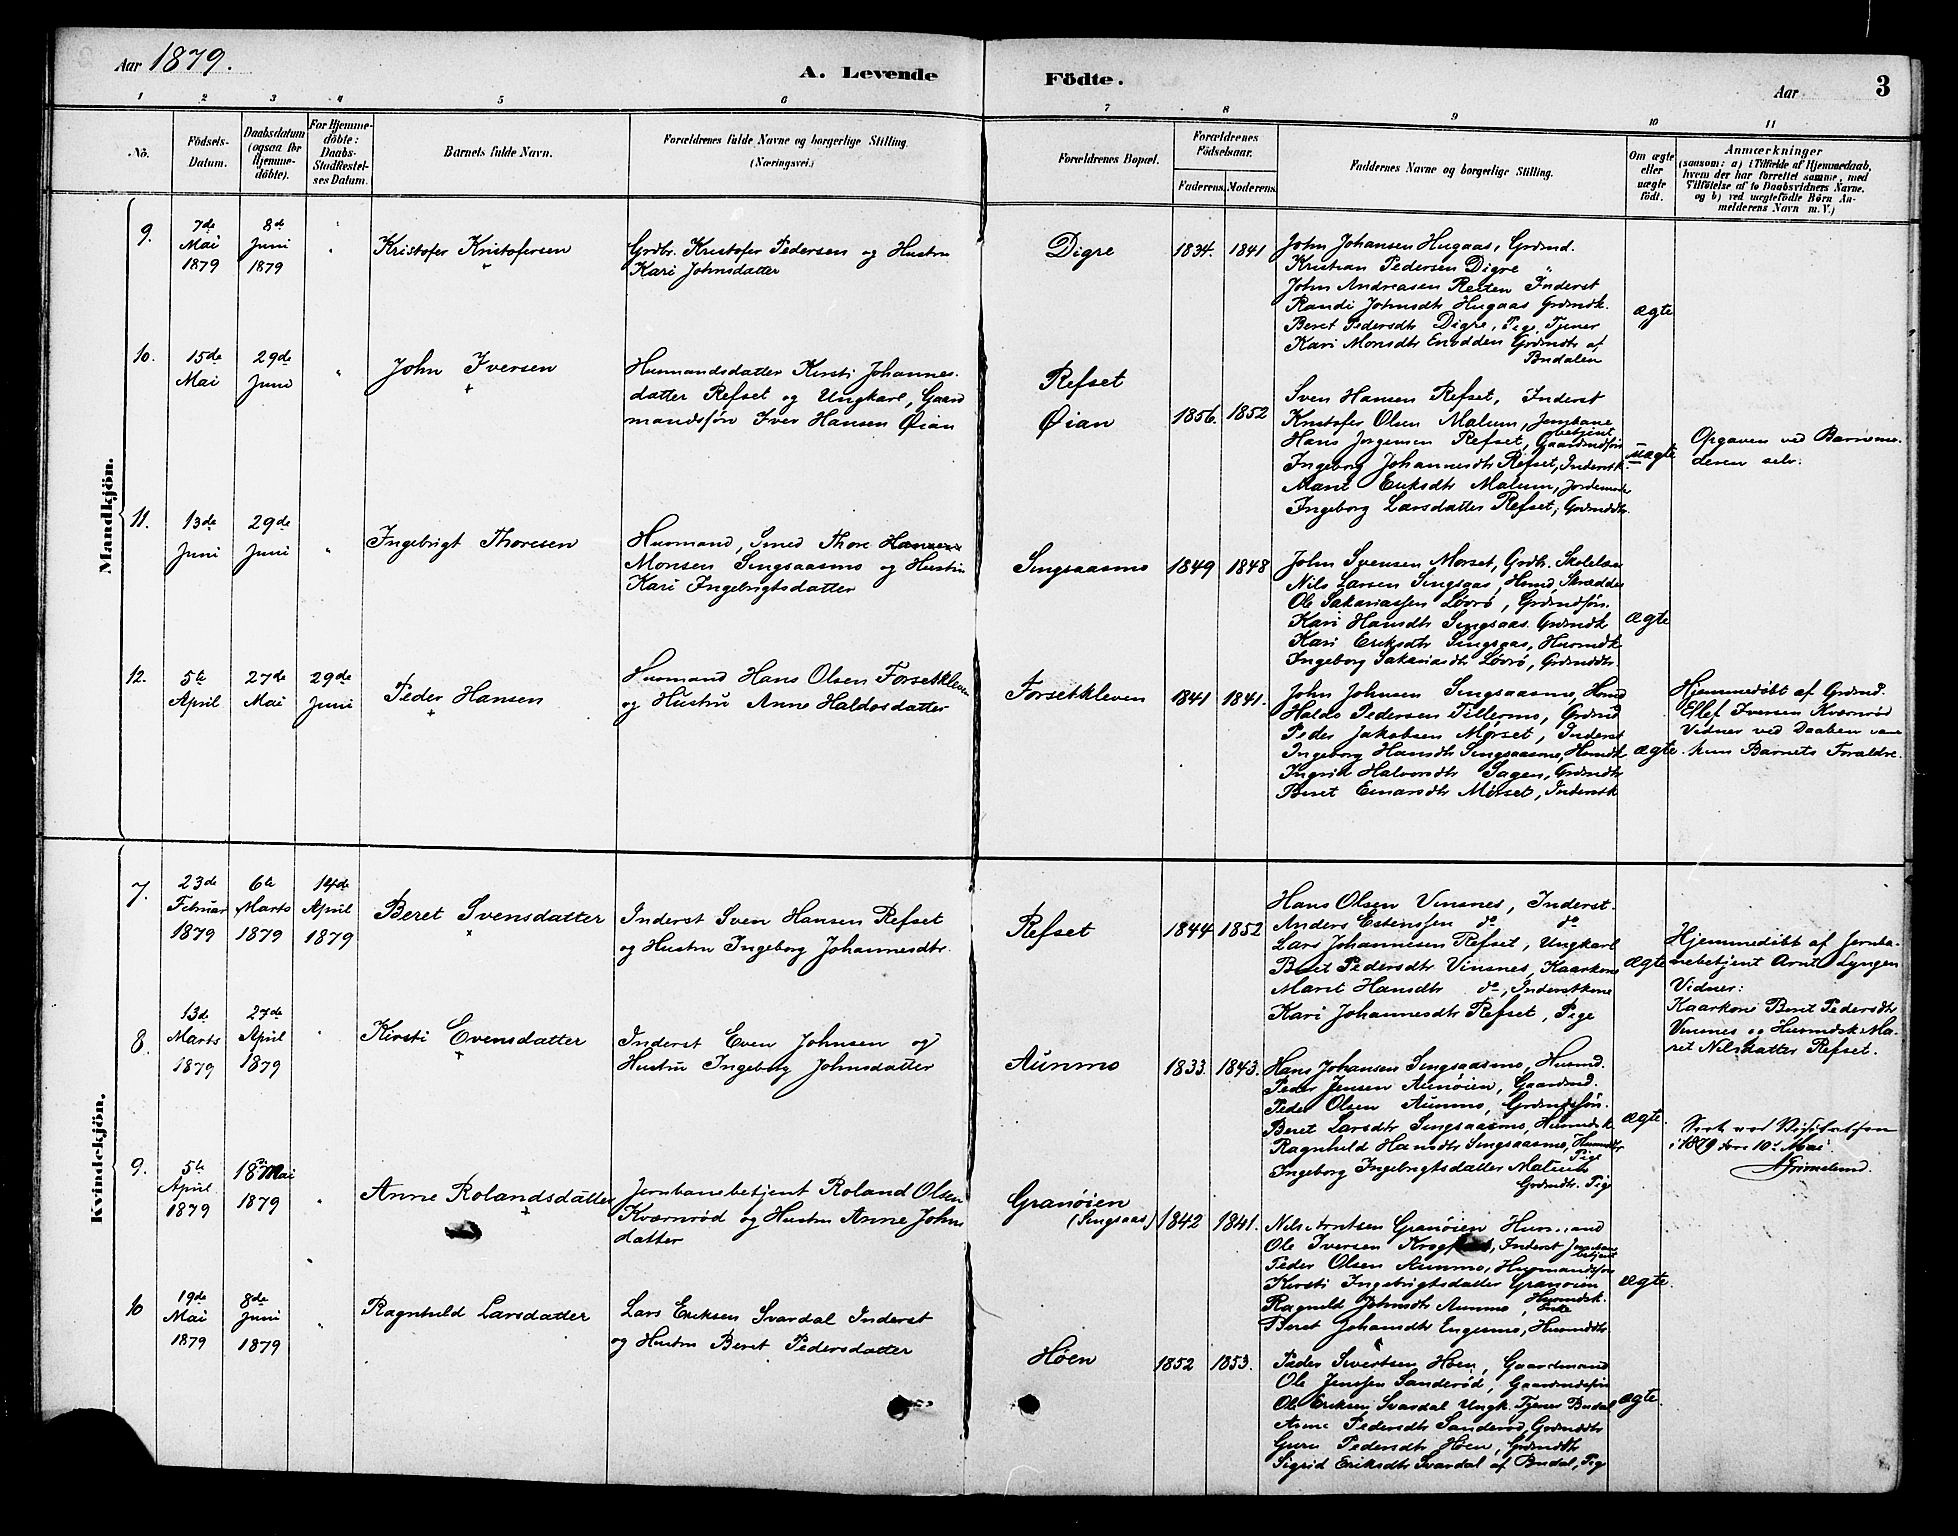 Aar 1879.
A. Levende Födte.
Aar
3
1 2 3 4 5 6 7 8 9 10 11
No.
Födsels-Datum.
Daabsdatum (ogsaa for Hjemme-döbte).
For Hjemme-döbte: Daabs-Stadfæstel-ses Datum.
Barnets fulde Navn.
Forældrenes fulde Navne og borgerlige Stilling. (Næringsvei.)
Forældrenes Bopæl.
Forældrenes Födselsaar.
Faderens. Moderens.
Faddernes Navne og borgerlige Stilling.
Om ægte eller uægte födt.
Anmærkninger
(saasom: a) i Tilfælde af Hjemmedaab,
hvem der har forrettet samme, med
Tilföielse af to Daabsvidners Navne,
og b) ved uægtefödte Börn An-
melderens Navn m. V.)
Mandkjön.
9.
7de Mai 1879
8de Juni 1879
"
Kristofer Kristofersen
Grdbr. Kristofer Pedersen og Hustru
Kari Johnsdatter
Digre
1834. 1841
John Johansen Hugaas, Grdmd.
Kristian Pedersen Digre "
John Andreasen Reiten Inderst
Randi Johnsdtr Hugaas Grdmdk.
Beret Pedersdtr Digre, Pige, Tjener
Kari Monsdtr Enodden Grdmdtr af
Budalen
ægte
10.
15de Mai
29de Juni
"
John Iversen
Husmandsdatter Kirsti Johannes-
datter Refset og Ungkarl, Gaard
mandssøn Iver Hansen Øian
Refset
Øian
1856. 1852
Sven Hansen Refset, Inderst
Kristofer Olsen Malum, Jernbane
betjent
Hans Jørgensen Refset, Gaardmdsøn
Ingeborg Johannesdtr Refset, Inderstk.
Marit Eriksdtr Malum, Jordemoder
Ingeborg Larsdatter Refset, Grdmdtr.
uægte
Opgaven ved Barnemo-
deren selv.
11.
13de Juni
29de Juni
"
Ingebrigt Thoresen
Husmand, Smed Thore Hansen
Monsen Singsaasmo og Hustru
Kari Ingebrigtsdatter
Singsaasmo
1849 1848
John Svensen Morset, Grdbr. Skolelær
Nils Larsen Singsaas, Hsmd, Skrædder
Ole Sakariassen Løvrø, Grdmdsøn.
Kari Hansdtr Singsaas. Grdmdk
Kari Eriksdtr Singsaas, Husmdk
Ingeborg Sakariasdtr Løvrø, Grdmddtr
ægte
12.
5te April
27de Mai
29de Juni
Peder Hansen
Husmand Hans Olsen Forsetkleven
og Hustru Anne Haldosdatter
Forsetkleven
1841 1841.
John Johnsen Singsaasmo, Hsmd
Haldo Pedersen Tillermo, Grdmd
Peder Jakobsen Morset, Inderst
Ingeborg Hansdtr Singsaasmo, Hsmdk
Ingrid Halvorsdtr Sagen, Grdmdtr
Beret Einarsdtr Morset, Inderstk
ægte
Hjemmedøbt af Grdmd.
Elef Iversen Kværnrød
Vidner ved Daaben vare
kun Barnets Forældre.
Kvindekjön.
7.
23de Februar 1879
6te Marts 1879
14de April 1879
Beret Svensdatter
Inderst Sven Hansen Refset
og Hustru Ingeborg Johannesdtr.
Refset
1844 1852
Hans Olsen Vinsnes, Inderst.
Anders Estenssen do do
Lars Johannesen Refset, Ungkarl
Beret Pedersdtr Vinsnes, Kaarkone
Marit Hansdtr do, Inderstkone
Kari Johannesdtr Refset, Pige
ægte
Hjemmedøbt af Jernba-
nebetjent Arnt Lyngen
Vidner:
Kaarkone Beret Pedersdtr
Vinsnes og Husmdsk Ma-
ret Nilsdatter Refset.
8.
13de Marts 1879
27de April 1879
"
Kirsti Evensdatter
Inderst Even Johnsen og
Hustru Ingeborg Johnsdatter
Aunmo
1833. 1843.
Hans Johansen Singsaasmo, Husmd.
Peder Jensen Aunøien, Gaardmd.
Peder Olsen Aunmo, Grdmdssøn.
Beret Larsdtr Singsaasmo, Husmdsk
Ragnhild Hansdtr Singsaasmo, Husmdtr
Pige
Ingeborg Ingebrigtsdatter Malum
Grdmdtr. Pige
ægte
Seet ved Visitatsen
i 1879 den 10de Mai
Grimelund.
9.
5te April 1879
18 Mai 1879
"
Anne Rolandsdatter
Jernbanebetjent Roland Olsen
Kværnrød og Hustru Anne Johns
datter
Granøien
(Singsaas)
1842 1841.
Nils Arntsen Granøien Husmand
Ole Iversen Inderst Jernbane
betjent
Peder Olsen Aunmo, Husmandssøn
Kirsti Ingebrigtsdatter Granøien
Husmdsk.
Ragnild Johnsdtr Aunmo, Enke
Beret Johansdtr Engesmo, Husmdtr
ægte
10
19de Mai 1879
8de Juni 1879
"
Ragnhild Larsdatter
Lars Eriksen Svardal Inderst
og Hustru Beret Pedersdatter
Høen
1852 1853.
Peder Sivertsen Høen, Gaardmand
Ole Jenssen Sanderød, Gaardmdssøn
Ole Eriksen Svardal Ungk. Tjener Budal
Anne Pedersdtr Sanderød, Grdmdtr
Guru Pedersdtr Høen, Grdmdtr
Sigrid Eriksdtr Svardal af Budal, Pig
ægte